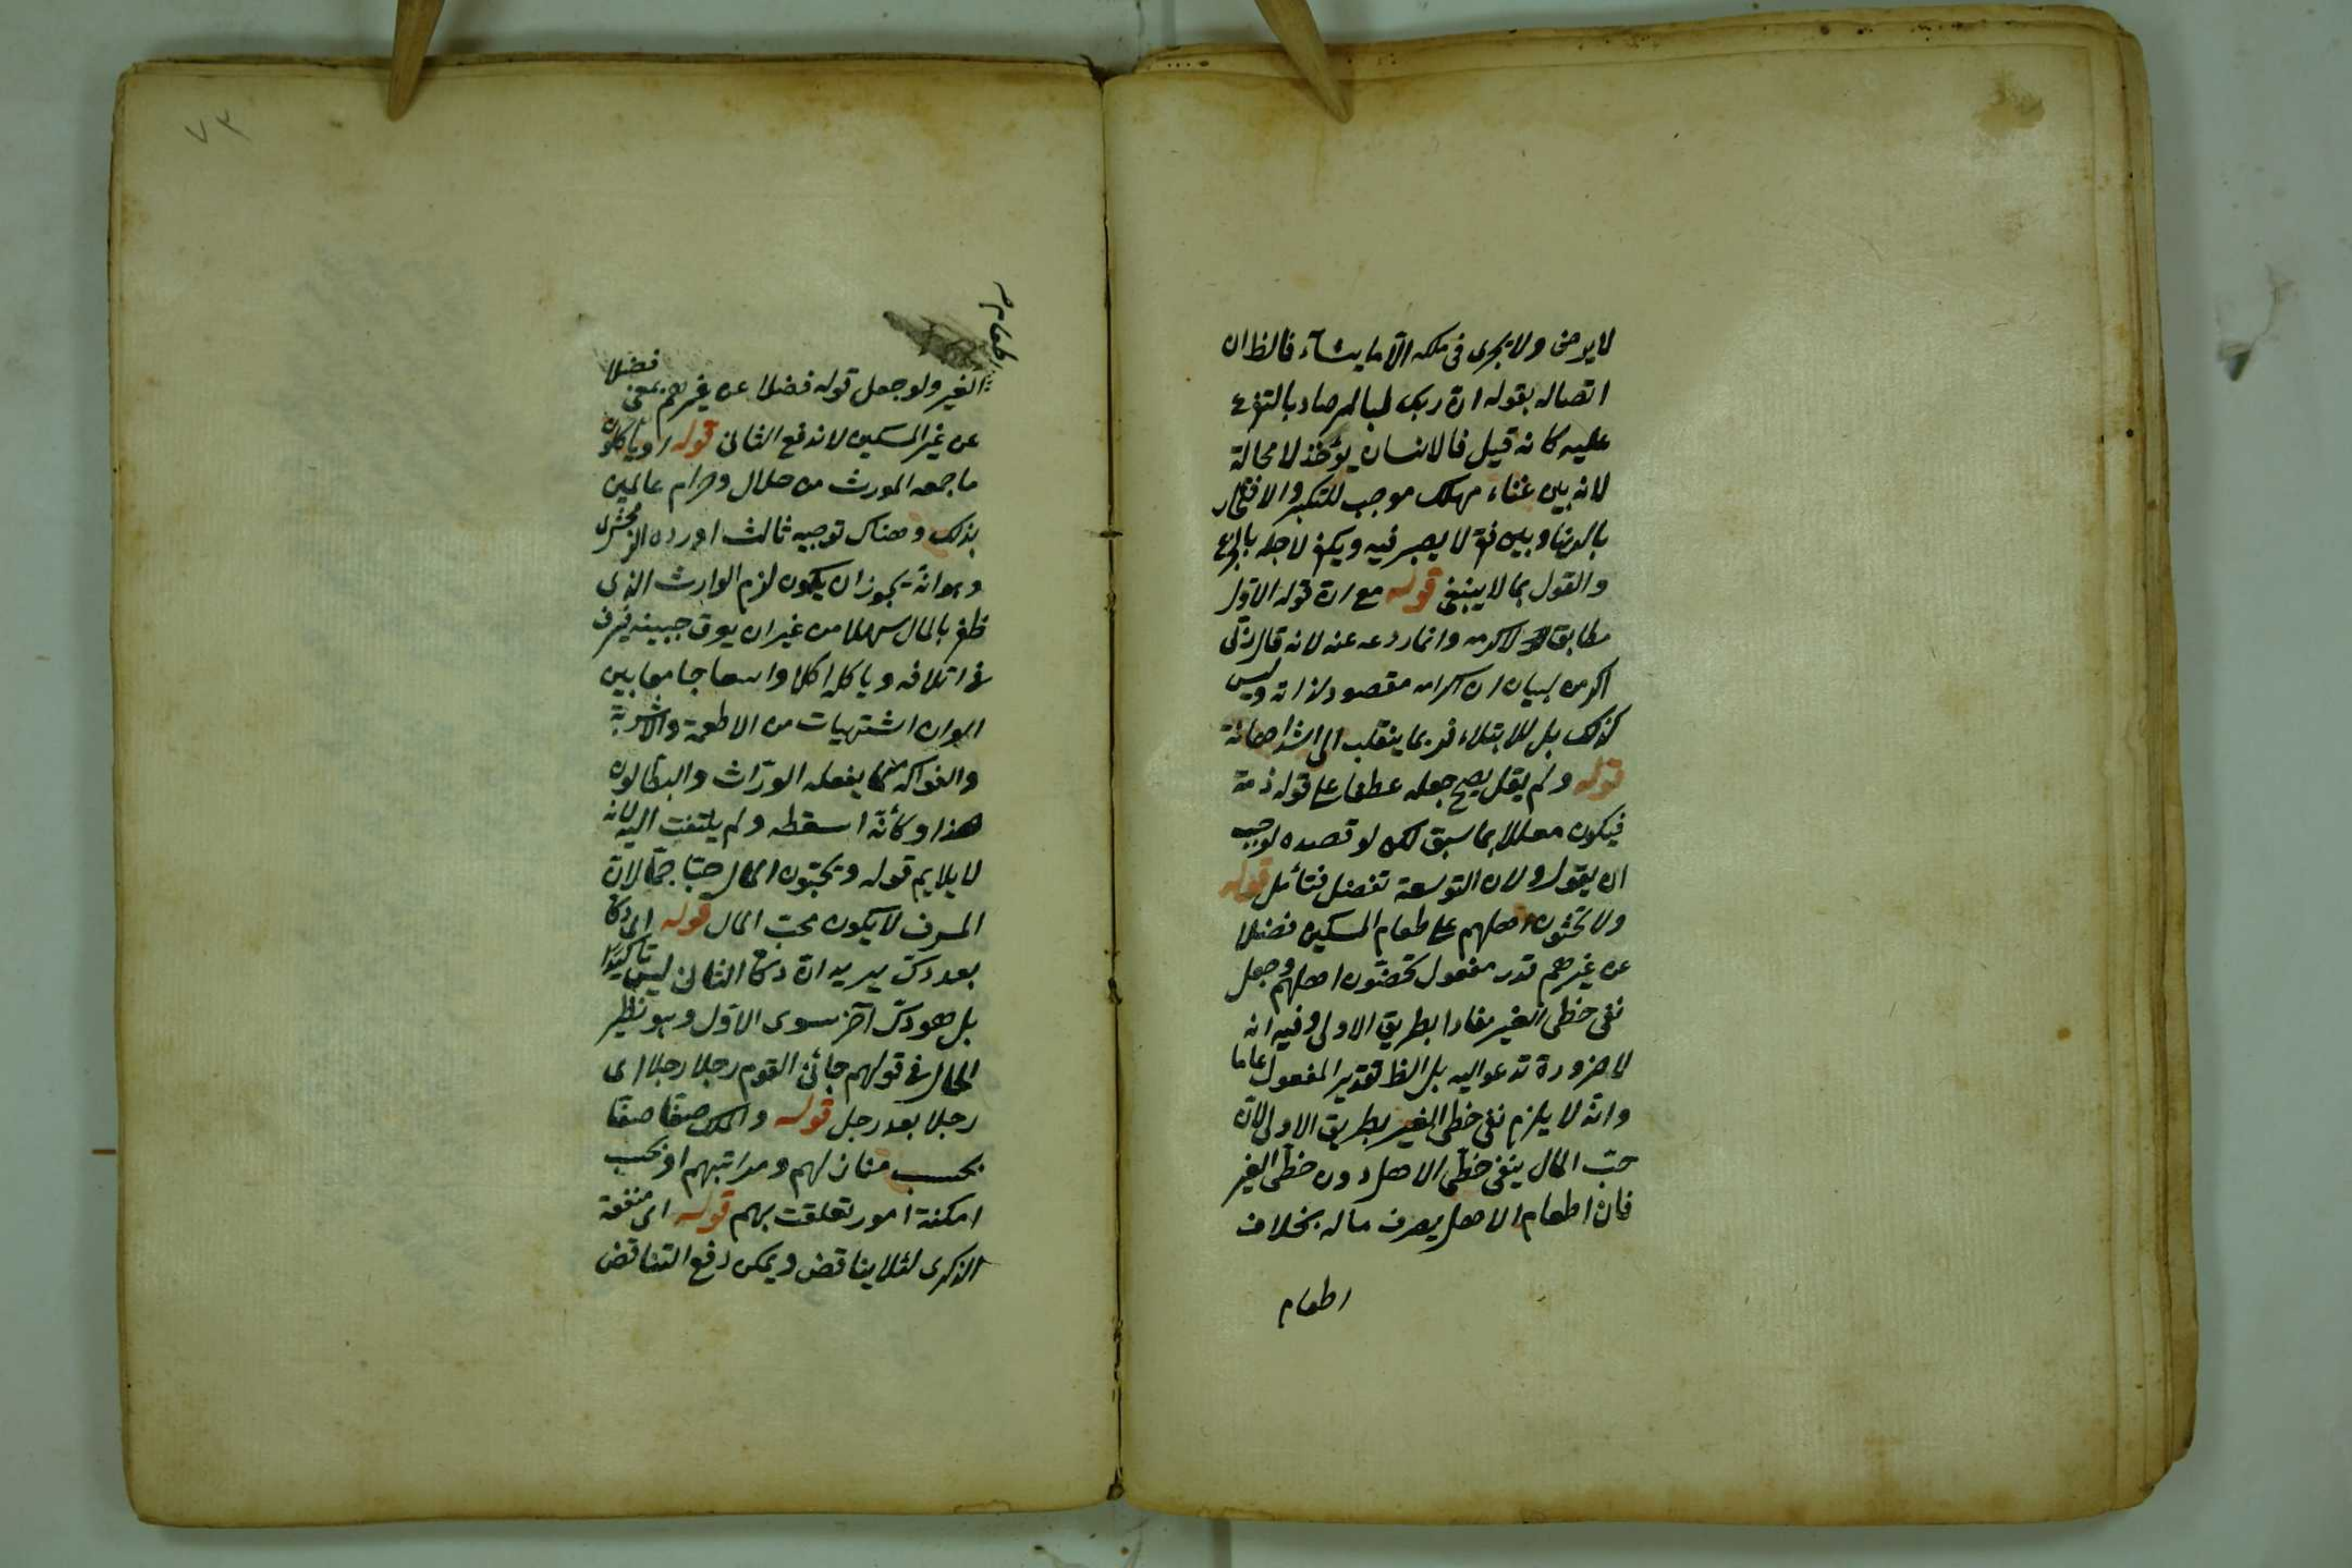 لا يرضى ولا يجرى فى ملكه الا ما يشاء فالظ ان
اتصاله بقوله ان ربك لبالمرصاد بالتفرع
عليه كانه قيل فالانسان يؤخذ لا محالة
لانه بين غناء مهلك موجب للتكبر والافتخار
بالدنيا وبين فقر لا يصبر فيه ويكفر لاجله بالجزع
والقول بما لا ينبغى قوله مع ان قوله الاول
مطابق لاكرمه وانما ردعه عنه لانه قال ربى
اكرمن لبيان ان اكرامه مقصود لذاته وليس
كذلك بل للابتلاء فربما ينقلب الى اشد اهانة
قوله ولم يقل يصح جعله عطفا على قوله ذمه
فيكون معللا بما سبق لكن لو قصده لوجب
ان يقول ولان التوسعة تفضل فتأمل قوله
ولا يحثون اهلهم على طعام المسكين فضلا
عن غيرهم قدر مفعول تحضون اهلهم وجعل
نفى حظى الغير مفادا بطريق الاولى وفيه انه
لا ضرورة تدعو اليه بل الظ تقدير المفعول عاما
وانه لا يلزم نفى حظى الغير بطريق الاولى لان
حبّ المال ينفى حظى الاهل دون حظى الغير
فان اطعام الاهل يصرف ماله بخلاف
اطعام
٧٣
اطعام
الغير ولو جعل قوله فضلا عن غيرهم بمعنى فضلا
عن غير المسكين لاندفع الثانى قوله او يأكلون
ما جمعه المورث من حلال وحرام عالمين
بذلك وهناك توجيه ثالث اورده الزمخشرى
وهو انه يجوز ان يكون لزم الوارث الذى
ظفر بالمال سهلا من غير ان يعرق جبينه فيسرف
فى اتلافه وياكله اكلا واسعا جامعا بين
الوان اشتهيات من الاطعمة والاشربة
والفواكه كما يفعله الورّاث والبطالون
هذا وكأنه اسقطه ولم يلتفت اليه لانه
لا يلايم قوله ويحبّون المال حبّا جمّا لان
المسرف لا يكون محبّ المال قوله اى دكّا
بعد دكّ يريد ان دكّا الثانى ليس تاكيدا
بل هو دكّ آخر سوى الاول وهو نظير
الحال فى قولهم جائنى القوم رجلا رجلا اى
رجلا بعد رجل قوله والملك صفّا صفّا
بحسب منازلهم ومراتبهم او بحسب
امكنة امور تعلقت بهم قوله اى منفعة
الذكرى لئلا يناقض ويمكن دفع التناقض